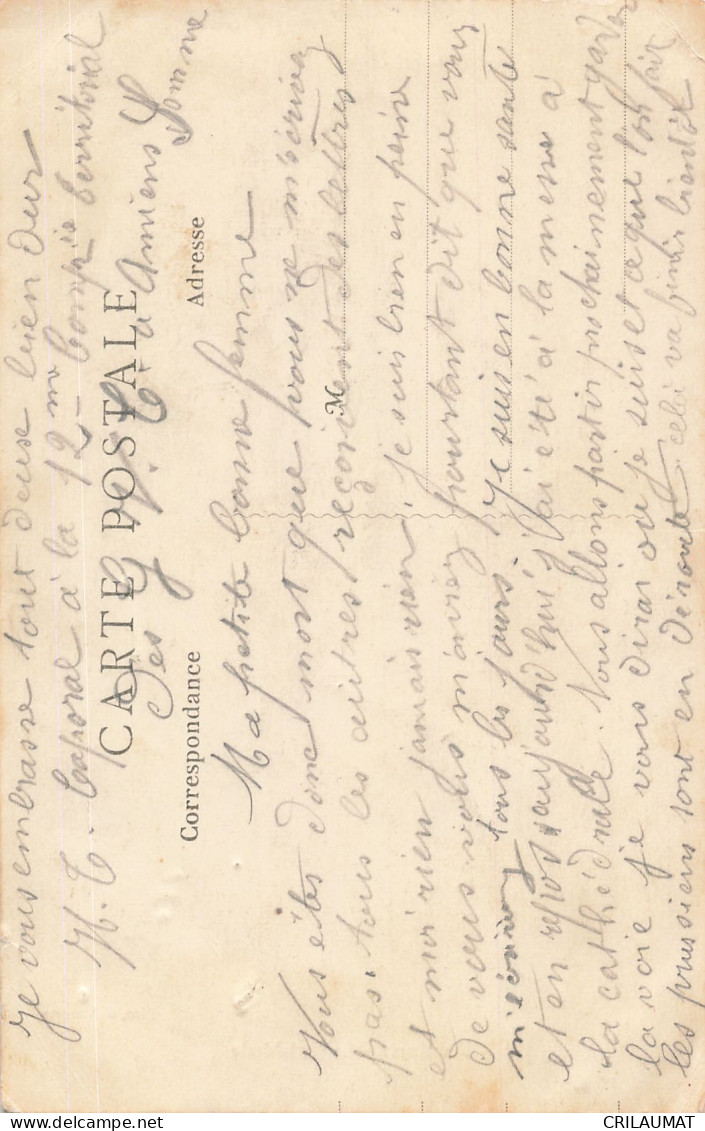 CARTE POSTALE
Correspondance
Adresse
M
Ma petite bonne femme
Vous êtes donc mort que vous ne m'écrivez
pas. tous les autres reçoivent des lettres
et moi rien jamais rien, je suis bien en peine
de vous vous m'aviez pourtant dit que vous
m'écririez tous les jours. Je suis en bonne santé
et en repos aujourd'hui j'ai été à la messe à
la cathédrale. Nous allons partir prochainement garder
la voie je vous dirai ou je suis et ce que l'on fait
les prussiens sont en déroute, cela va finir bientôt
Je vous embrasse tout deux bien dur
H. T. Caporal à la 12me Compie territorial
des G. V. C. à Amiens Somme
© DELCAMPE.NET
CRILAUMAT